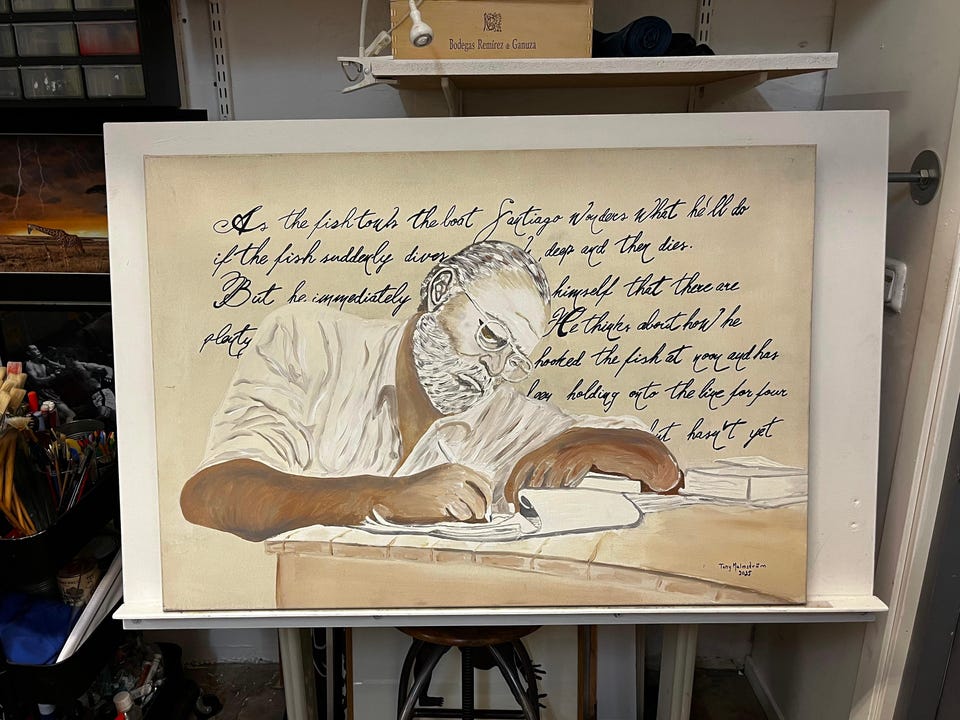 Bodegas Remírez de Ganuza
As the fish tows the boat Santiago wonders what he'll do
if the fish suddenly dives, deep and then dies.
But he immediately himself that there are
plenty He thinks about how he
hooked the fish at noon and has
been holding onto the line for four
but hasn't yet
Tony Malmström
2025